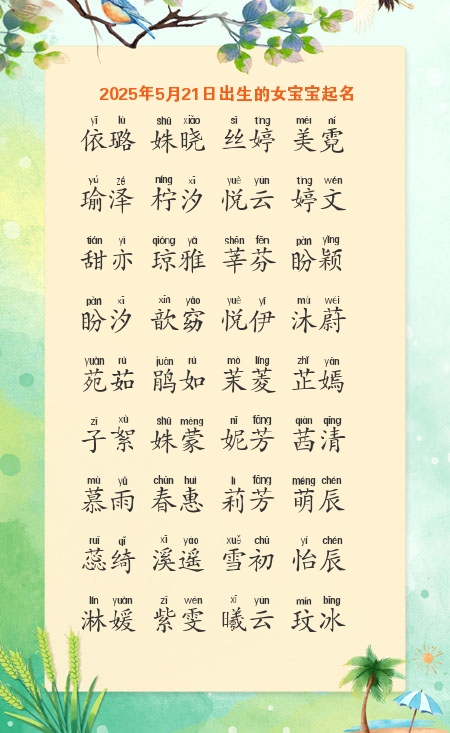 2025年5月21日出生的女宝宝起名
yī lù shū xiǎo sī tíng měi ní
依璐 姝晓 丝婷 美霓
yú zé níng xī yuè yún tíng wén
瑜泽 柠汐 悦云 婷文
tián yì qióng yǎ shēn fēn pàn yǐng
甜亦 琼雅 莘芬 盼颖
pàn xī xīn yǎo yuè yī mù wèi
盼汐 歆窈 悦伊 沐蔚
yuàn rú juān rú mò líng zhǐ yān
苑茹 鹃如 茉菱 芷嫣
zǐ xù shū méng nī fāng qiàn qīng
子絮 姝蒙 妮芳 茜清
mù yǔ chūn huì lì fāng méng chén
慕雨 春惠 莉芳 萌辰
ruǐ qǐ xī yáo xuě chū yí chén
蕊绮 溪遥 雪初 怡辰
lín yuàn zǐ wén xī yún mín bīng
淋媛 紫雯 曦云 玟冰